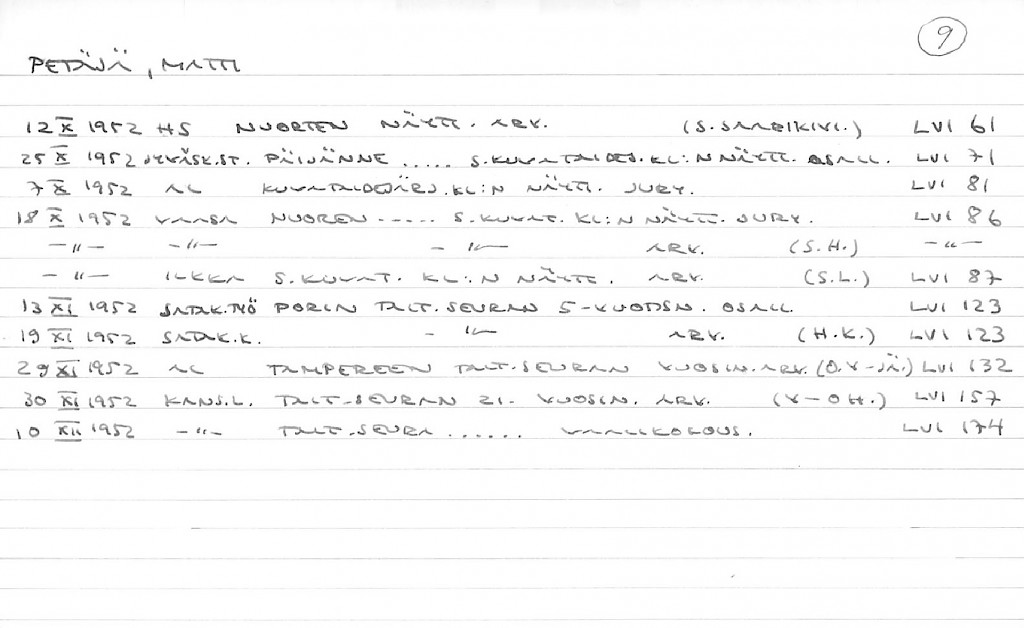 9
PETÄJÄ, MATTI
12 X 1952 HS NUORTEN NÄYTT. ARV. (S. SAARIKIVI.) LVI 61
25 X 1952 JYVÄSK.ST. PÄIJÄNNE ..... S.KUVATAIDEJ.KL:N NÄYTT. OSALL. LVI 71
7 X 1952 AL KUVATAIDEJÄRJ.KL:N NÄYTT. JURY. LVI 81
18 X 1952 VAASA NUOREN ..... S.KUVAT. KL:N NÄYTT. JURY. LVI 86
—"— —"— —"— ARV. (S.H.) —"—
—"— ILKKA S.KUVAT. KL:N NÄYTT. ARV. (S.L.) LVI 87
13 XI 1952 SATAK.TYÖ PORIN TAIT.SEURAN 5-VUOTISN. OSALL. LVI 123
19 XI 1952 SATAK.K. —"— ARV. (H.K.) LVI 123
29 XI 1952 AL TAMPEREEN TAIT.SEURAN VUOSIN.ARV. (O.V-JÄ.) LVI 132
30 XI 1952 KANS.L. TAIT.SEURAN 21. VUOSIN. ARV. (V-OH.) LVI 157
10 XII 1952 —"— TAIT.SEURA ...... VAALIKOKOUS. LVI 174